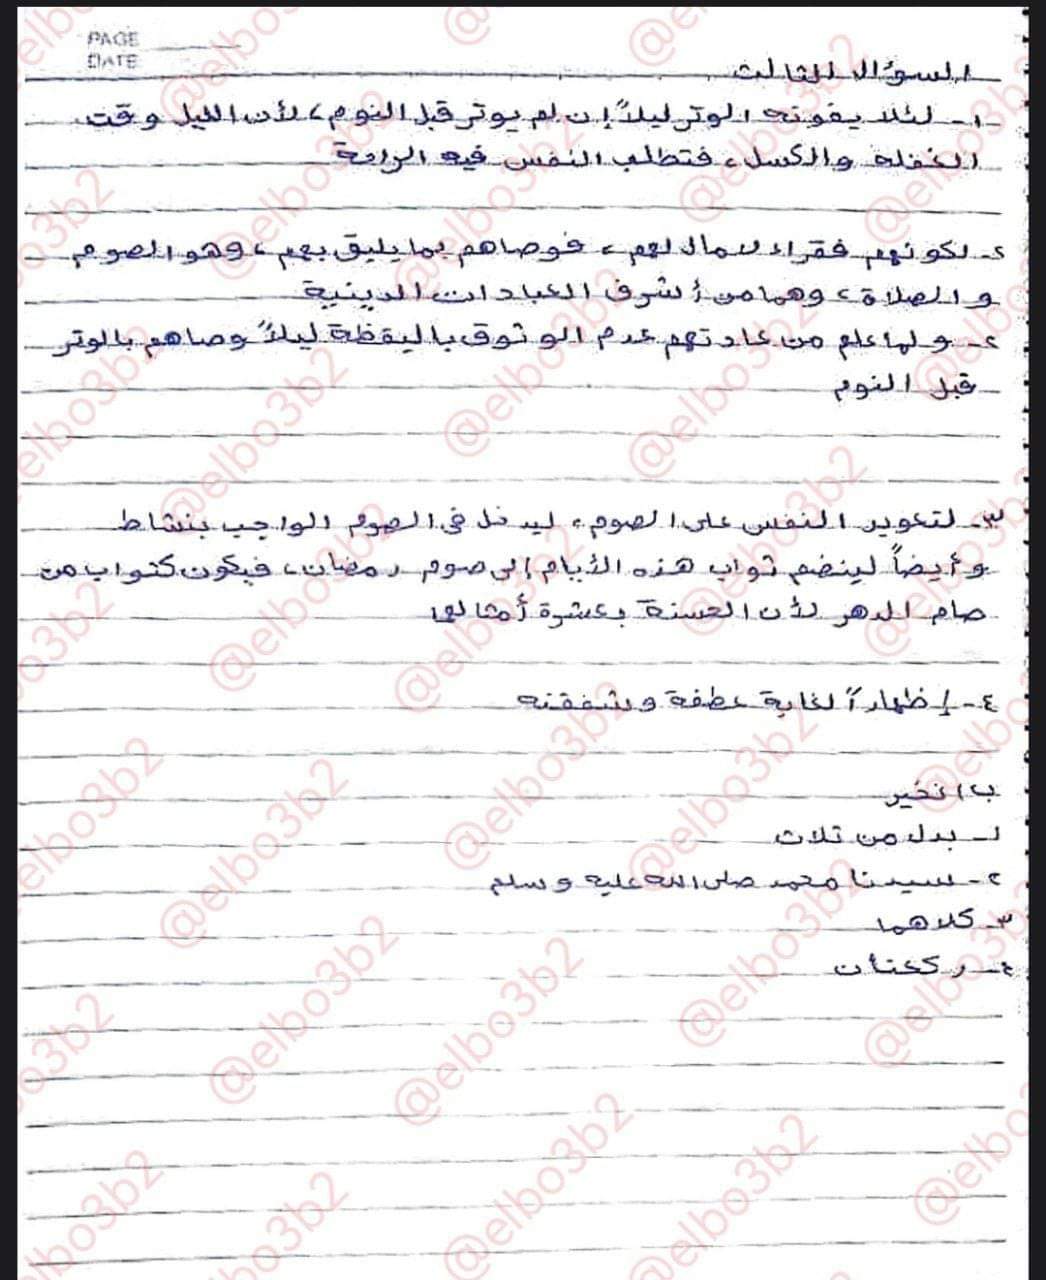 PAGE
DATE
السؤال الثالث
١- لئلا يفوته الوتر ليلاً إن لم يوتر قبل النوم، لأن الليل وقت
الغفله والكسل، فتطلب النفس فيه الراحة
٢- لكونهم فقراء لا مال لهم، فوصاهم بما يليق بهم، وهو الصوم
و الصلاة، وهما من أشرف العبادات الدينية
٢- ولما علم من عادتهم عدم الوثوق باليقظة ليلاً وصاهم بالوتر
قبل النوم
٣- لتعويد النفس على الصوم، ليدخل في الصوم الواجب بنشاط
وأيضاً لينضم ثواب هذه الأيام إلى صوم رمضان، فيكون كثواب من
صام الدهر لأن الحسنة بعشرة أمثالها
٤- إظهاراً لغاية عطفة وشفقته
ب) تخير
١- بدل من ثلاث
٢- سيدنا محمد صلى الله عليه وسلم
٣- كلاهما
٤- ركعتان
@elbo3b2